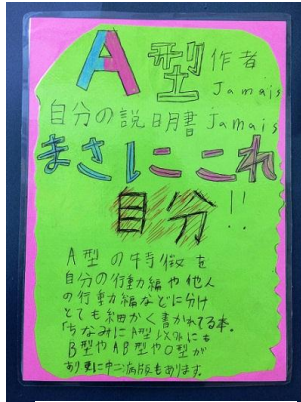 A型 作者
Jamais
自分の説明書 Jamais
まさしここれ
自分!!
A型の特徴を
自分の行動編や他人
の行動編などに分け
とても細かく書かれてる本。
ちなみにA型以外にも
B型やAB型やO型が
あり更に中二病版もあります。